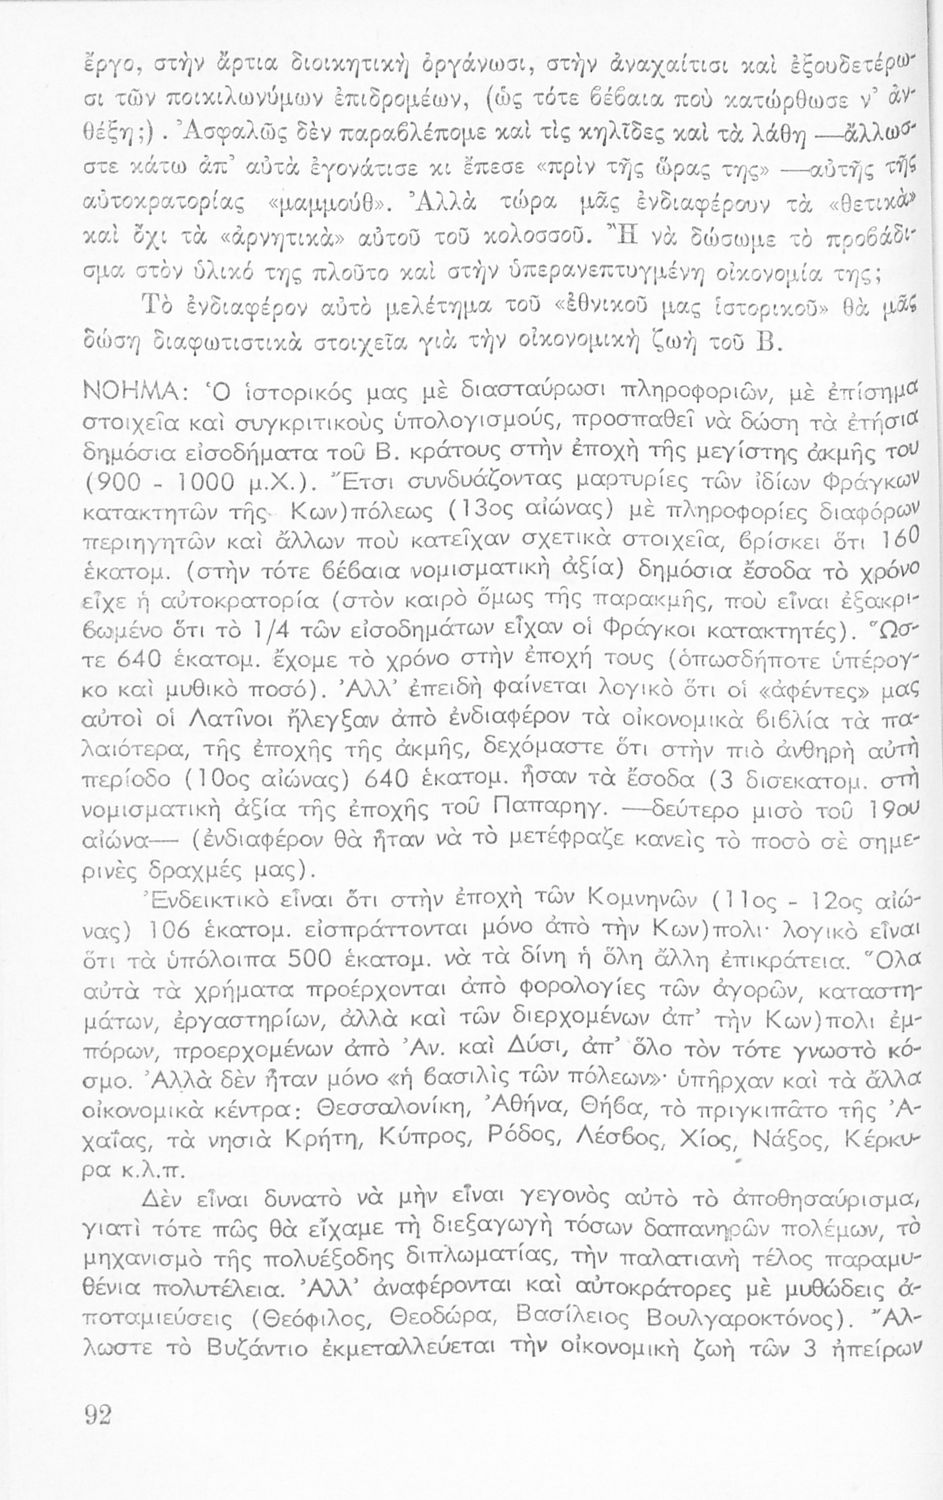 ἔργο, στὴν ἄρτια διοικητικὴ ὀργάνωσι, στὴν ἀναχαίτισι καὶ ἐξουδετέρω-
σι τῶν ποικιλωνύμων ἐπιδρομέων, (ὡς τότε βέβαια ποὺ κατώρθωσε ν’ ἀν-
θέξῃ;) . Ἀσφαλῶς δὲν παραβλέπομε καὶ τὶς κηλῖδες καὶ τὰ λάθη —ἄλλωσ-
στε κάτω ἀπ’ αὐτὰ ἐγονάτισε κι ἔπεσε «πρὶν τῆς ὥρας της» —αὐτῆς τῆς
αὐτοκρατορίας «μαμμούθ». Ἀλλὰ τώρα μᾶς ἐνδιαφέρουν τὰ «θετικὰ»
καὶ ὄχι τὰ «ἀρνητικὰ» αὐτοῦ τοῦ κολοσσοῦ. Ἢ νὰ δώσωμε τὸ προβάδι-
σμα στὸν ὑλικό της πλοῦτο καὶ στὴν ὑπερανεπτυγμένη οἰκονομία της;
Τὸ ἐνδιαφέρον αὐτὸ μελέτημα τοῦ «ἐθνικοῦ μας ἱστορικοῦ» θὰ μᾶς
δώσῃ διαφωτιστικὰ στοιχεῖα γιὰ τὴν οἰκονομικὴ ζωὴ τοῦ Β.
ΝΟΗΜΑ: Ὁ ἱστορικός μας μὲ διασταύρωσι πληροφοριῶν, μὲ ἐπίσημα
στοιχεῖα καὶ συγκριτικοὺς ὑπολογισμούς, προσπαθεῖ νὰ δώση τὰ ἐτήσια
δημόσια εἰσοδήματα τοῦ Β. κράτους στὴν ἐποχὴ τῆς μεγίστης ἀκμῆς του
(900 - 1000 μ.Χ.). Ἔτσι συνδυάζοντας μαρτυρίες τῶν ἰδίων Φράγκων
κατακτητῶν τῆς Κων)πόλεως (13ος αἰώνας) μὲ πληροφορίες διαφόρων
περιηγητῶν καὶ ἄλλων ποὺ κατεῖχαν σχετικὰ στοιχεῖα, βρίσκει ὅτι 160
ἑκατομ. (στὴν τότε βέβαια νομισματικὴ ἀξία) δημόσια ἔσοδα τὸ χρόνο
εἶχε ἡ αὐτοκρατορία (στὸν καιρὸ ὅμως τῆς παρακμῆς, ποὺ εἶναι ἐξακρι-
βωμένο ὅτι τὸ 1/4 τῶν εἰσοδημάτων εἶχαν οἱ Φράγκοι κατακτητές). Ὥσ-
τε 640 ἑκατομ. ἔχομε τὸ χρόνο στὴν ἐποχή τους (ὁπωσδήποτε ὑπέρογ-
κο καὶ μυθικὸ ποσό). Ἀλλ’ ἐπειδὴ φαίνεται λογικὸ ὅτι οἱ «ἀφέντες» μας
αὐτοὶ οἱ Λατῖνοι ἤλεγξαν ἀπὸ ἐνδιαφέρον τὰ οἰκονομικὰ βιβλία τὰ πα-
λαιότερα, τῆς ἐποχῆς τῆς ἀκμῆς, δεχόμαστε ὅτι στὴν πιὸ ἀνθηρὴ αὐτὴ
περίοδο (10ος αἰώνας) 640 ἑκατομ. ἦσαν τὰ ἔσοδα (3 δισεκατομ. στὴ
νομισματικὴ ἀξία τῆς ἐποχῆς τοῦ Παπαρηγ. —δεύτερο μισὸ τοῦ 19ου
αἰώνα— (ἐνδιαφέρον θὰ ἦταν νὰ τὸ μετέφραζε κανεὶς τὸ ποσὸ σὲ σημε-
ρινὲς δραχμές μας).
Ἐνδεικτικὸ εἶναι ὅτι στὴν ἐποχὴ τῶν Κομνηνῶν (11ος - 12ος αἰώ-
νας) 106 ἑκατομ. εἰσπράττονται μόνο ἀπὸ τὴν Κων)πολι· λογικὸ εἶναι
ὅτι τὰ ὑπόλοιπα 500 ἑκατομ. νὰ τὰ δίνη ἡ ὅλη ἄλλη ἐπικράτεια. Ὅλα
αὐτὰ τὰ χρήματα προέρχονται ἀπὸ φορολογίες τῶν ἀγορῶν, καταστη-
μάτων, ἐργαστηρίων, ἀλλὰ καὶ τῶν διερχομένων ἀπ’ τὴν Κων)πολι ἐμ-
πόρων, προερχομένων ἀπὸ Ἀν. καὶ Δύσι, ἀπ’ ὅλο τὸν τότε γνωστὸ κό-
σμο. Ἀλλὰ δὲν ἦταν μόνο «ἡ βασιλὶς τῶν πόλεων»· ὑπῆρχαν καὶ τὰ ἄλλα
οἰκονομικὰ κέντρα: Θεσσαλονίκη, Ἀθήνα, Θήβα, τὸ πριγκιπᾶτο τῆς Ἀ-
χαΐας, τὰ νησιὰ Κρήτη, Κύπρος, Ρόδος, Λέσβος, Χίος, Νάξος, Κέρκυ-
ρα κ.λ.π.
Δὲν εἶναι δυνατὸ νὰ μὴν εἶναι γεγονὸς αὐτὸ τὸ ἀποθησαύρισμα,
γιατὶ τότε πῶς θὰ εἴχαμε τὴ διεξαγωγὴ τόσων δαπανηρῶν πολέμων, τὸ
μηχανισμὸ τῆς πολυέξοδης διπλωματίας, τὴν παλατιανὴ τέλος παραμυ-
θένια πολυτέλεια. Ἀλλ’ ἀναφέρονται καὶ αὐτοκράτορες μὲ μυθώδεις ἀ-
ποταμιεύσεις (Θεόφιλος, Θεοδώρα, Βασίλειος Βουλγαροκτόνος). Ἄλ-
λωστε τὸ Βυζάντιο ἐκμεταλλεύεται τὴν οἰκονομικὴ ζωὴ τῶν 3 ἠπείρων
92